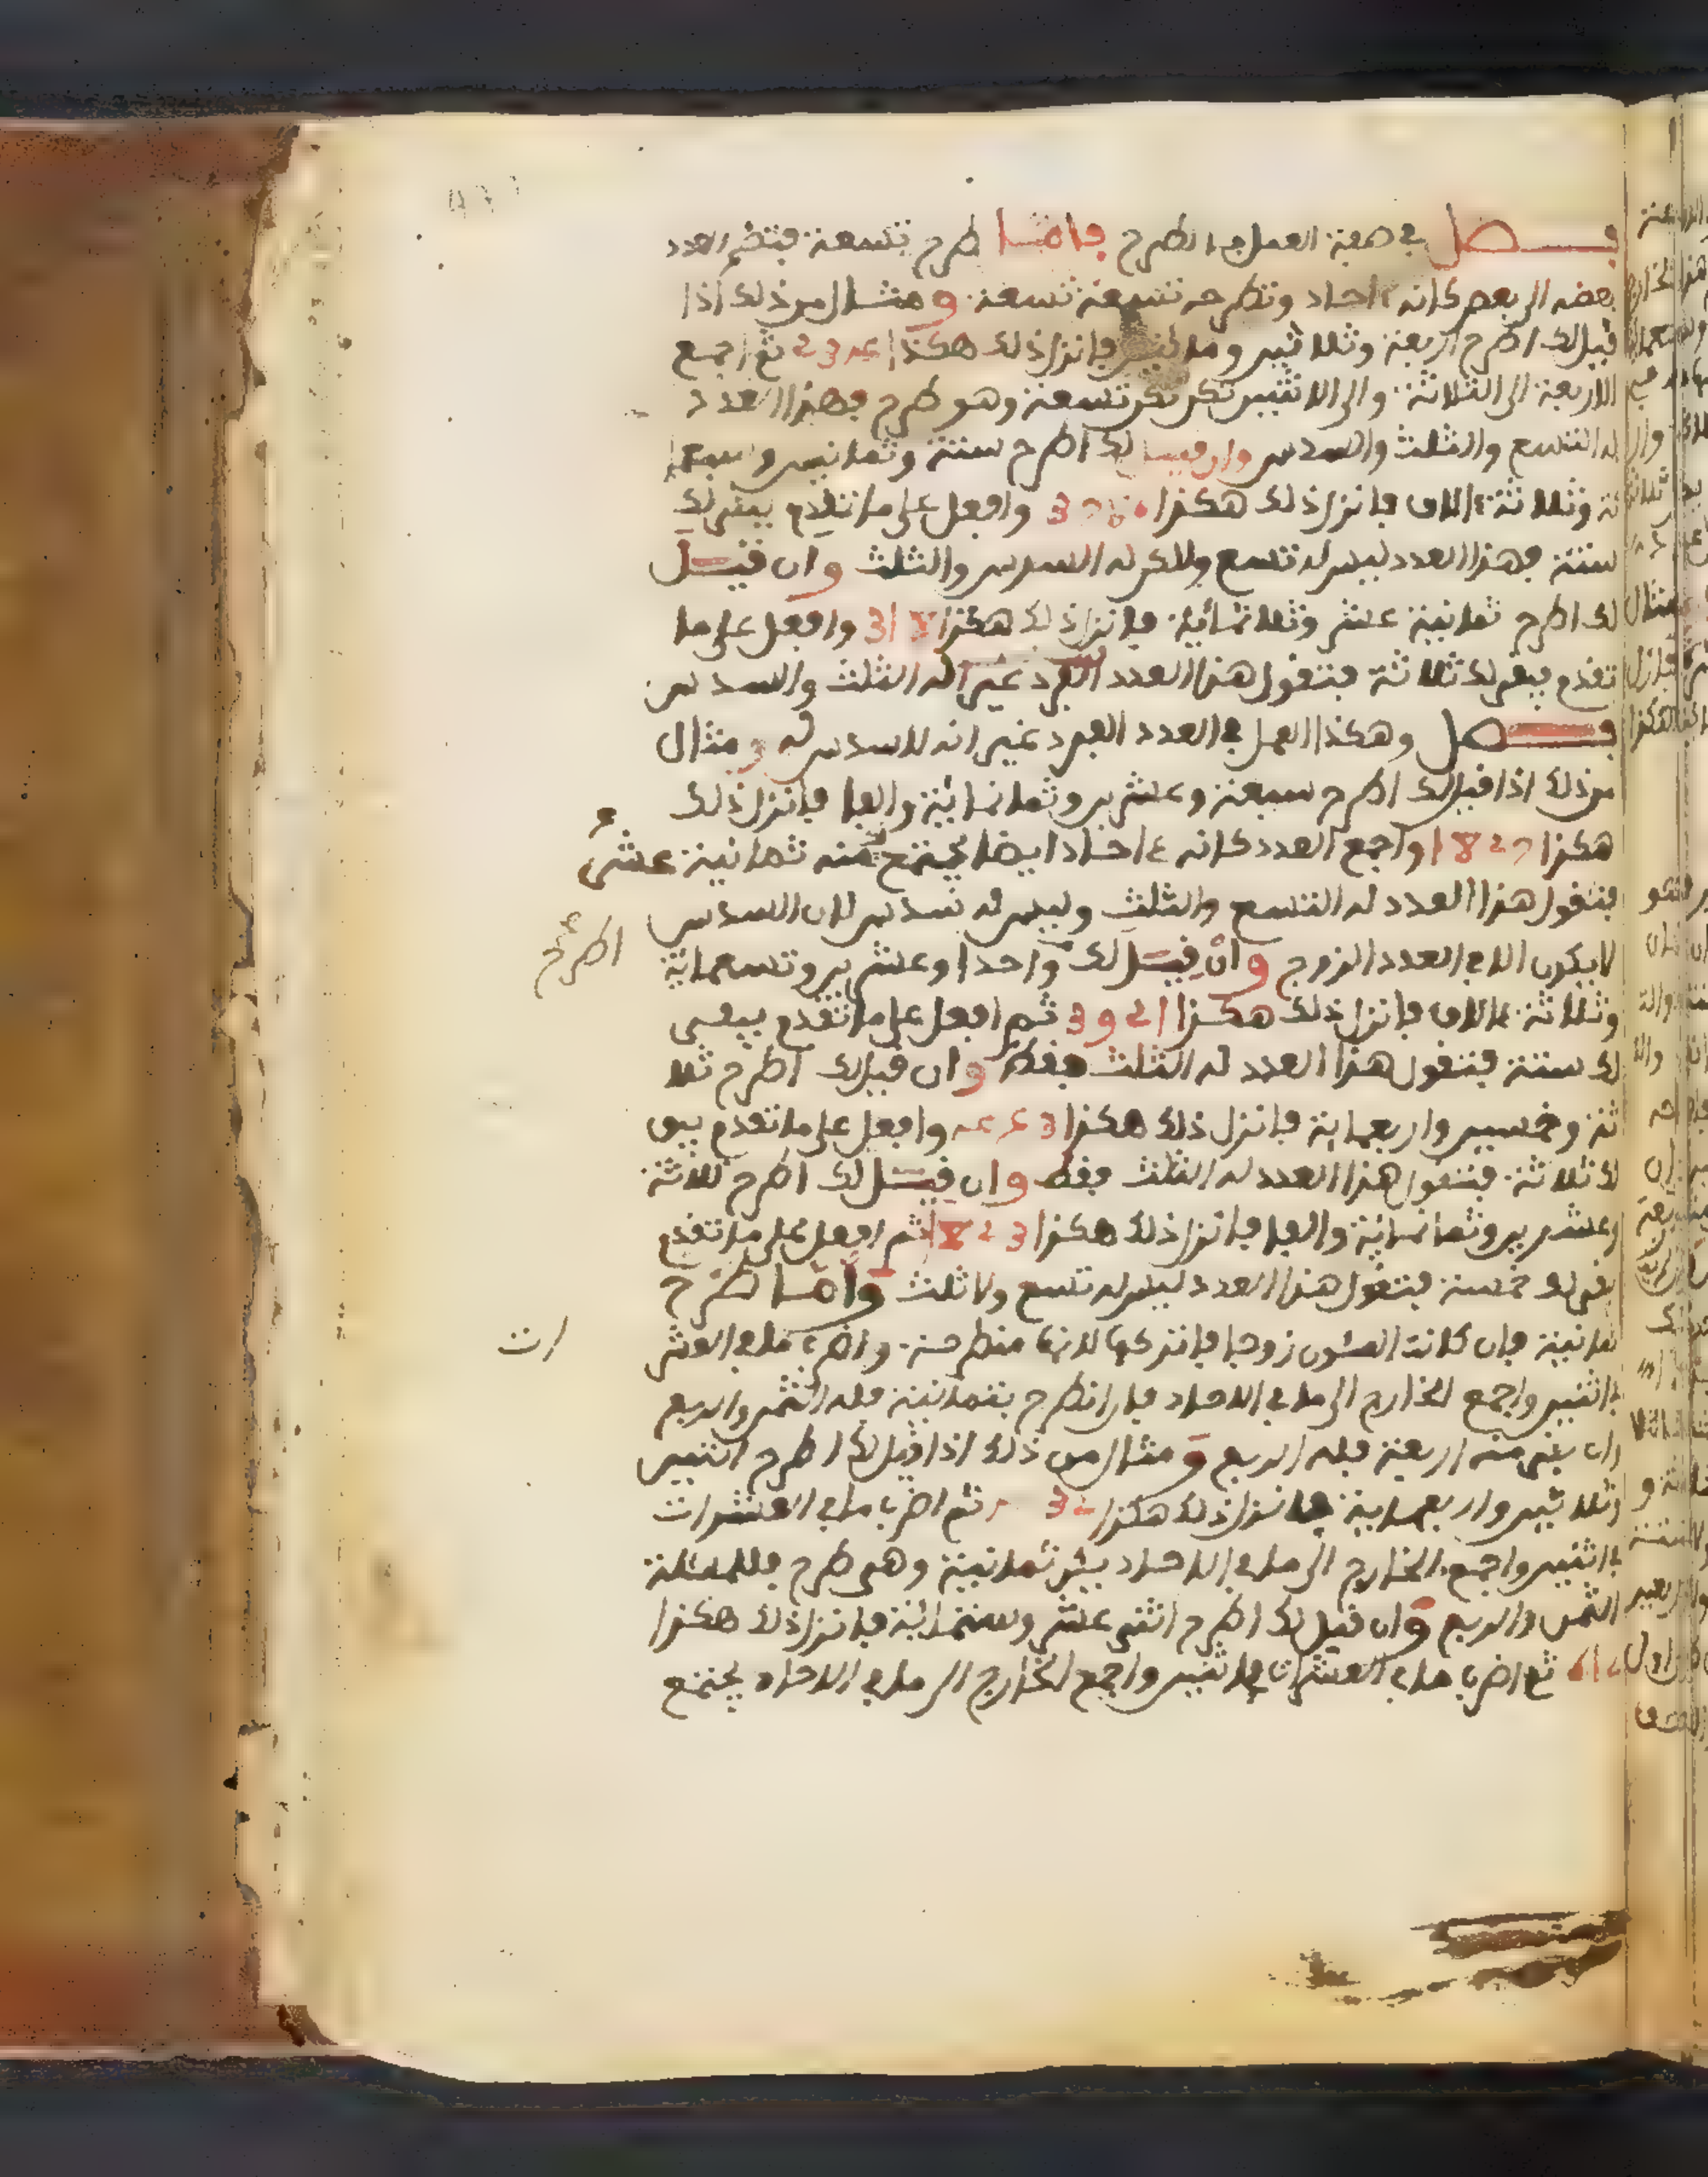 فصل في صفة العمل في الطرح فاما طرح تسعة فتضم العدد
بعضه الى بعض كانه ءاحاد وتطرحه تسعة تسعة ومثال من ذلك اذا
قيل لك اطرح اربعة وثلاثين ومائتين فانزل ذلك هكذا 234 ثم اجمع
الاربعة الى الثلاثة والى الاثنين تكن تكن تسعة وهو طرح فهذا العدد
له التسع والثلث والسدس وان قيل لك اطرح ستة وثمانين وسبعما
ئة وثلاثة ءالاف فانزل ذلك هكذا وافعل على ما تقدم يبقى لك
ستة فهذا العدد ليس له تسع ولاكن له السدس والثلث وان قيل
لك اطرح ثمانية عشر وثلاثمائة فانزل ذلك هكذا 318 وافعل على ما
تقدم يبقى لك ثلاثة فتقول هذا العدد له الثلث والسدس
فصل وهكذا العمل في العدد الفرد غير انه لا سدس له ومثال
من ذلك اذا قيل لك اطرح سبعة وعشرين وثمانمائة والفا فانزل ذلك
هكذا 1827 واجمع العدد كانه ءاحاد ايضا يجتمع منه ثمانية عشر
فتقول هذا العدد له التسع والثلث وليس له سدس لان السدس
لا يكون الا في العدد الزوج وان قيل لك واحدا وعشرين وتسعمائة
اطرح
وثلاثة ءالاف فانزل ذلك هكذا 3921 ثم افعل على ما تقدم يبقى
لك ستة فتقول هذا العدد له الثلث فقط وان قيل لك اطرح ثلا
ثة وخمسين واربعماية فانزل ذلك هكذا 453 وافعل على ما تقدم يبق
لك ثلاثة فتقول هذا العدد له الثلث فقط وان قيل لك اطرح ثلاثة
وعشرين وثمانمائة والفا فانزل ذلك هكذا 1823 ثم افعل على ما تقدم
يبقى لك خمسة فتقول هذا العدد ليس له تسع ولا ثلث واما طرح
ثمانية فان كانت المئون زوجا فاتركها لانها منطرحة واضرب ما في العشر
ات
في اثنين واجمع الخارج الى ما في الاحاد فان انطرح بثمانية فله الثمن والربع
وان بقي منه اربعة فله الربع ومثال من ذلك اذا قيل لك اطرح اثنين
وثلاثين واربعماية فانزل ذلك هكذا ثم اضرب ما في العشرات
في اثنين واجمع الخارج الى ما في الاحاد ثمانية وهي طرح فللمسئلة
الثمن والربع وان قيل لك اطرح اثني عشر وستمائة فانزل ذلك هكذا
612 ثم اضرب ما في العشرات في اثنين واجمع الخارج الى ما في الاحاد يجتمع